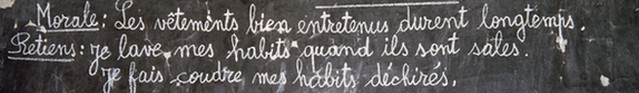 Morale : Les vêtements bien entretenus durent longtemps.
Retiens : je lave mes habits quand ils sont sales.
Je fais coudre mes habits déchirés.